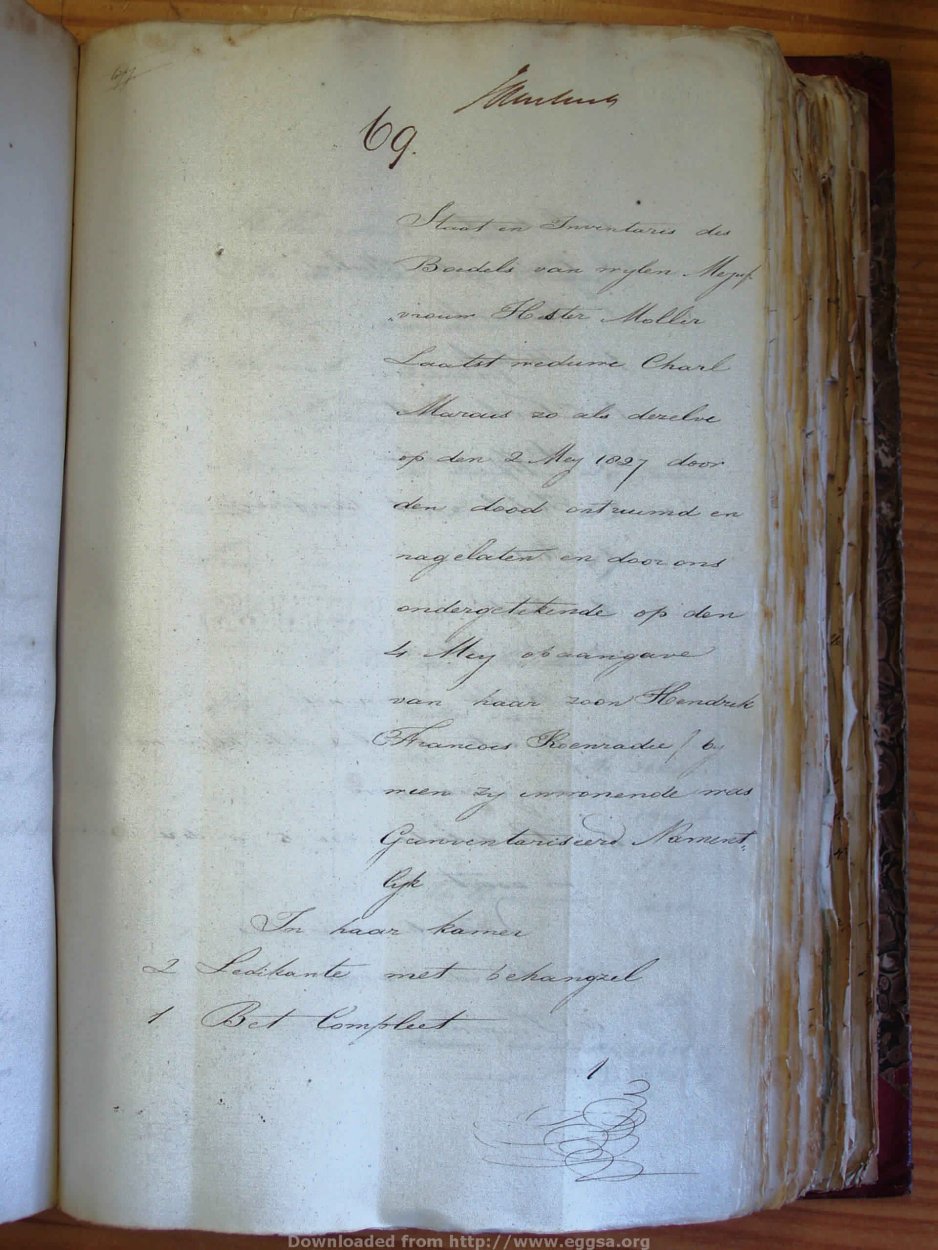 69.
Staat en Inventaris des
Boedels van wylen Mejuf
„vrouw Hester Mollir
Laatst weduwe Charl
Marais zo als dezelve
op den 2 Mey 1827 door
den dood ontruimd en
nagelaten en door ons
ondergetekende op den
4 Mey op aangave
van haar zoon Hendrik
Francois Roenradie / by
wien zy inwonende was
Geinventariseerd Nament„
lyk
In haar kamer
2 Ledikante met behangzel
1 Bet Compleet
1
Downloaded from http://www.eggsa.org